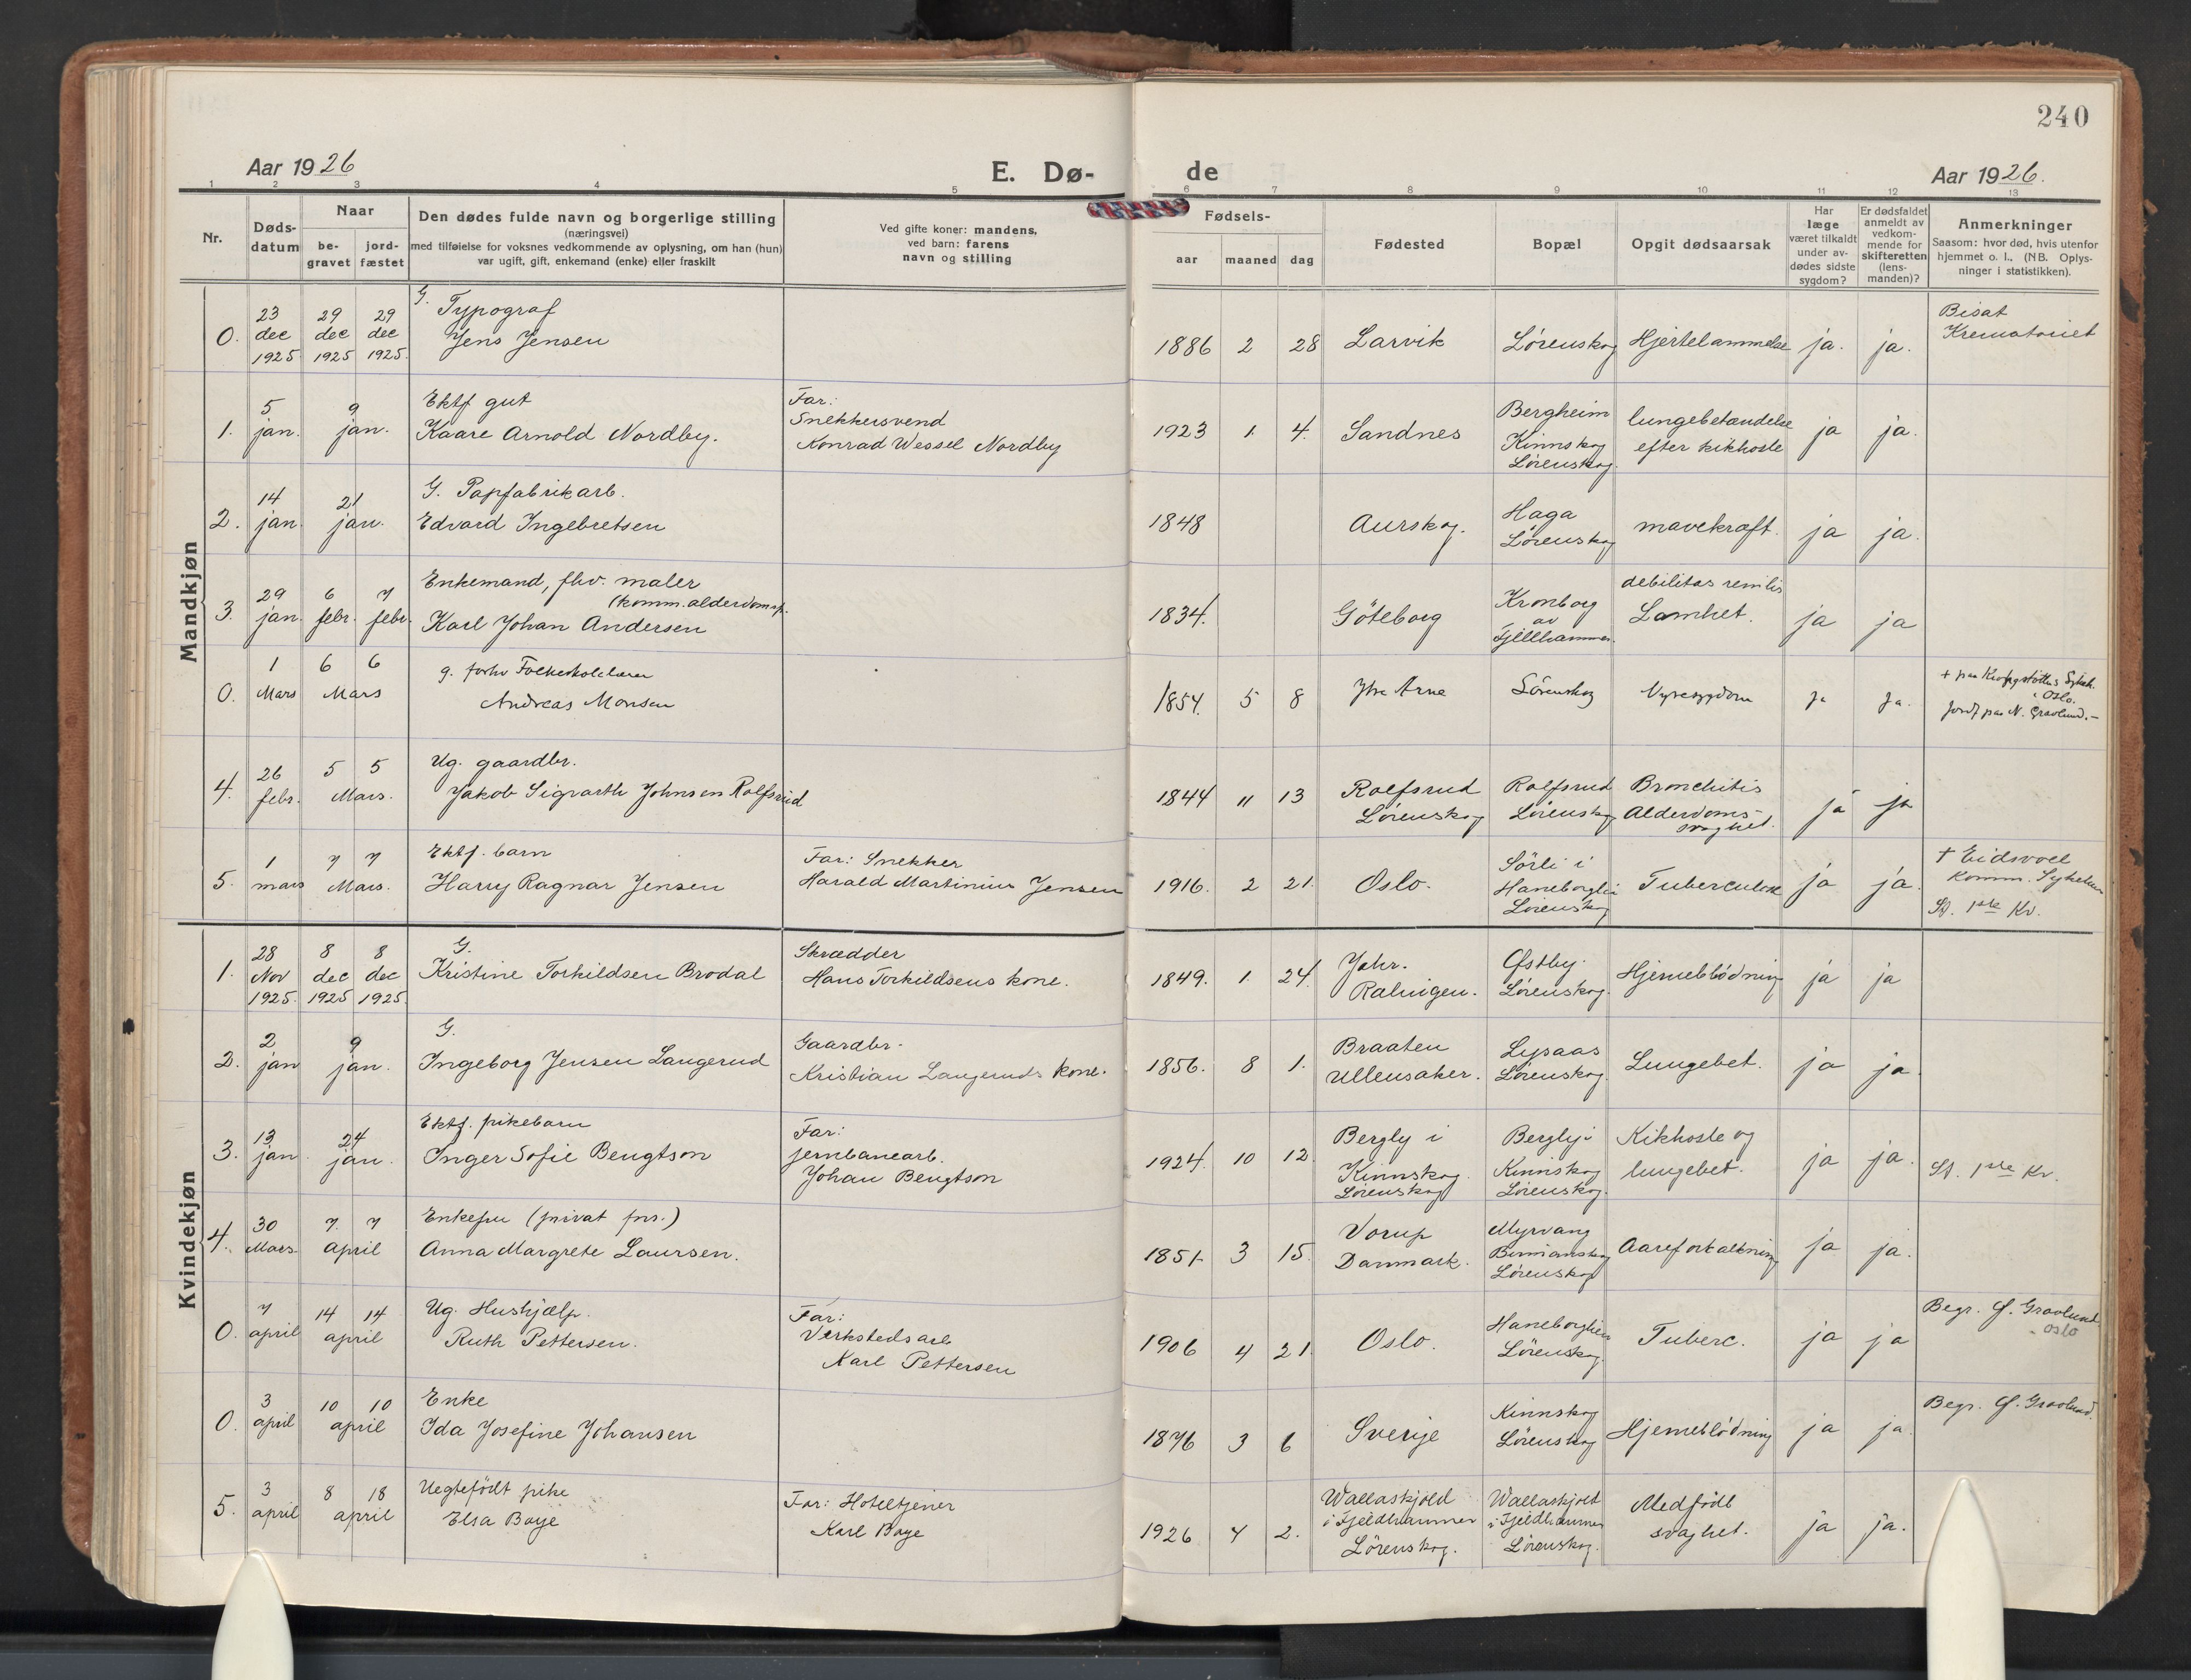 240
Aar 1926
E. Dø-
de
Aar 1926.
1 2 3 4 5 6 7 8 9 10 11 12 13
Nr.
Døds-
datum
Naar
be-
gravet
jord-
fæstet
Den dødes fulde navn og borgerlige stilling
(næringsvei)
med tilføielse for voksnes vedkommende av oplysning, om han (hun)
var ugift, gift, enkemand (enke) eller fraskilt
Ved gifte koner: mandens,
ved barn: farens
navn og stilling
Fødsels-
aar maaned dag
Fødested
Bopæl
Opgit dødsaarsak
Har
læge
været tilkaldt
under av-
dødes sidste
sygdom?
Er dødsfaldet
anmeldt av
vedkom-
mende for
skifteretten
(lens-
manden)?
Anmerkninger
Saasom: hvor død, hvis utenfor
hjemmet o. l.. (NB. Oplys-
ninger i statistikken).
Mandkjøn
0. 23 dec 1925 29 dec 1925 29 dec 1925.
G. Typograf
Jens Jensen
1886 2 28 Larvik Lørenskog Hjertelammelse ja. ja.
Bisat
Krematoriet
1. 5 jan. 9 jan.
Ektf gut
Kaare Arnold Nordby.
Far:
Snekkersvend
Konrad Wessel Nordby
1923 1. 4. Sandnes
Bergheim
Kinnskog
Lørenskog.
lungebetændelse
efter kikhoste
ja ja.
2. 14 jan. 21 jan.
G. Papfabrikarb.
Edvard Ingebretsen
1848 Aurskog.
Haga
Lørenskog
mavekræft. ja ja.
3. 29 jan. 6 febr. 7 febr.
Enkemand, fhv. maler
(komm. alderdomsp.
Karl Johan Andersen
1834. Göteborg
Kronborg
av
Fjellhammer.
debilitas senilis
Lamhet. ja ja
0. 1 Mars 6 6 Mars
g. forhv Folkeskolelærer
Andreas Monsen
1854. 5 8 Ytre Arne Lörenskog Nyresygdom Ja Ja.
+ paa Krohgstøttens Sykeh.
i Oslo.
Jordf paa N. Gravlund.-
4. 26 febr. 5 5 Mars.
Ug. gaardbr.
Jakob Sigvarth Johnsen Rolfsrud
1844 11 13
Rolfsrud
Lørenskog
Rolfsrud
Lørenskog
Bronchitis
Alderdoms-
svaghet.
ja ja
5. 1 mars 7 7 Mars.
Ektf. barn
Harry Ragnar Jensen
Far: Snekker
Harald Martinius Jensen
1916. 2 21. Oslo.
Sörli i
Haneborglia
Lørenskog
Tuberculose ja ja.
+ Eidsvoll
Komm. Sykehus
St. 1ste Kv.
Kvindekjøn
1. 28 Nov 1925. 8 dec 1925 8 dec 1925.
G.
Kristine Torkildsen Brodal
Skrædder
Hans Torkildsens kone.
1849. 1. 24.
Ralingen.
Østby.
Lørenskog.
Hjerneblödning ja ja
2. 2 jan 9 jan.
G.
Ingeborg Jensen Langerud
Gaardbr.
Kristian Langeruds kone.
1856. 8 1.
Braaten
Ullensaker.
Lysaas
Lørenskog.
Lungebet. ja ja
3. 13 jan. 24 jan.
Ektf. pikebarn
Inger Sofie Bengtson
Far:
jernbanearb.
Johan Bengtson
1924. 10 12
Bergly i
Kinnskog.
Lörenskog
Bergly i
Kinnskog
Lörenskog.
Kikhoste og
lungebet.
ja ja.
St. 1ste Kv.
4. 30 Mars 7. 7 april
Enkefru (privat fors.)
Anna Margrete Laursen.
1851. 3 15.
Vorup
Danmark.
Myrvang
Lörenskog
Aareforkalkning ja ja.
0. 7 april 14 14 april
Ug. Hushjælp.
Ruth Pettersen.
Far:
Verkstedsarb
Karl Pettersen
1906 4 21. Oslo.
Haneborglien
Lörenskog.
Tuberc. ja ja
Begr. Ø. Gravlund.
Oslo
0. 3 april 10 10 april
Enke
Ida Josefine Johansen
1876 3 6 Sverige
Kinnskog
Lörenskog
Hjerneblödning ja ja.
Begr. Ø. Gravlund.
5. 3 april 8 18 april
Uegtefödt pike
Elsa Boye
Far: Hoteltjener
Karl Boye
1926 4 2.
Wallaskjold
i Fjeldhammer
Lörenskog.
Wallaskjold
i Fjeldhammer
Lörenskog.
Medfödt
svaghet.
ja ja.